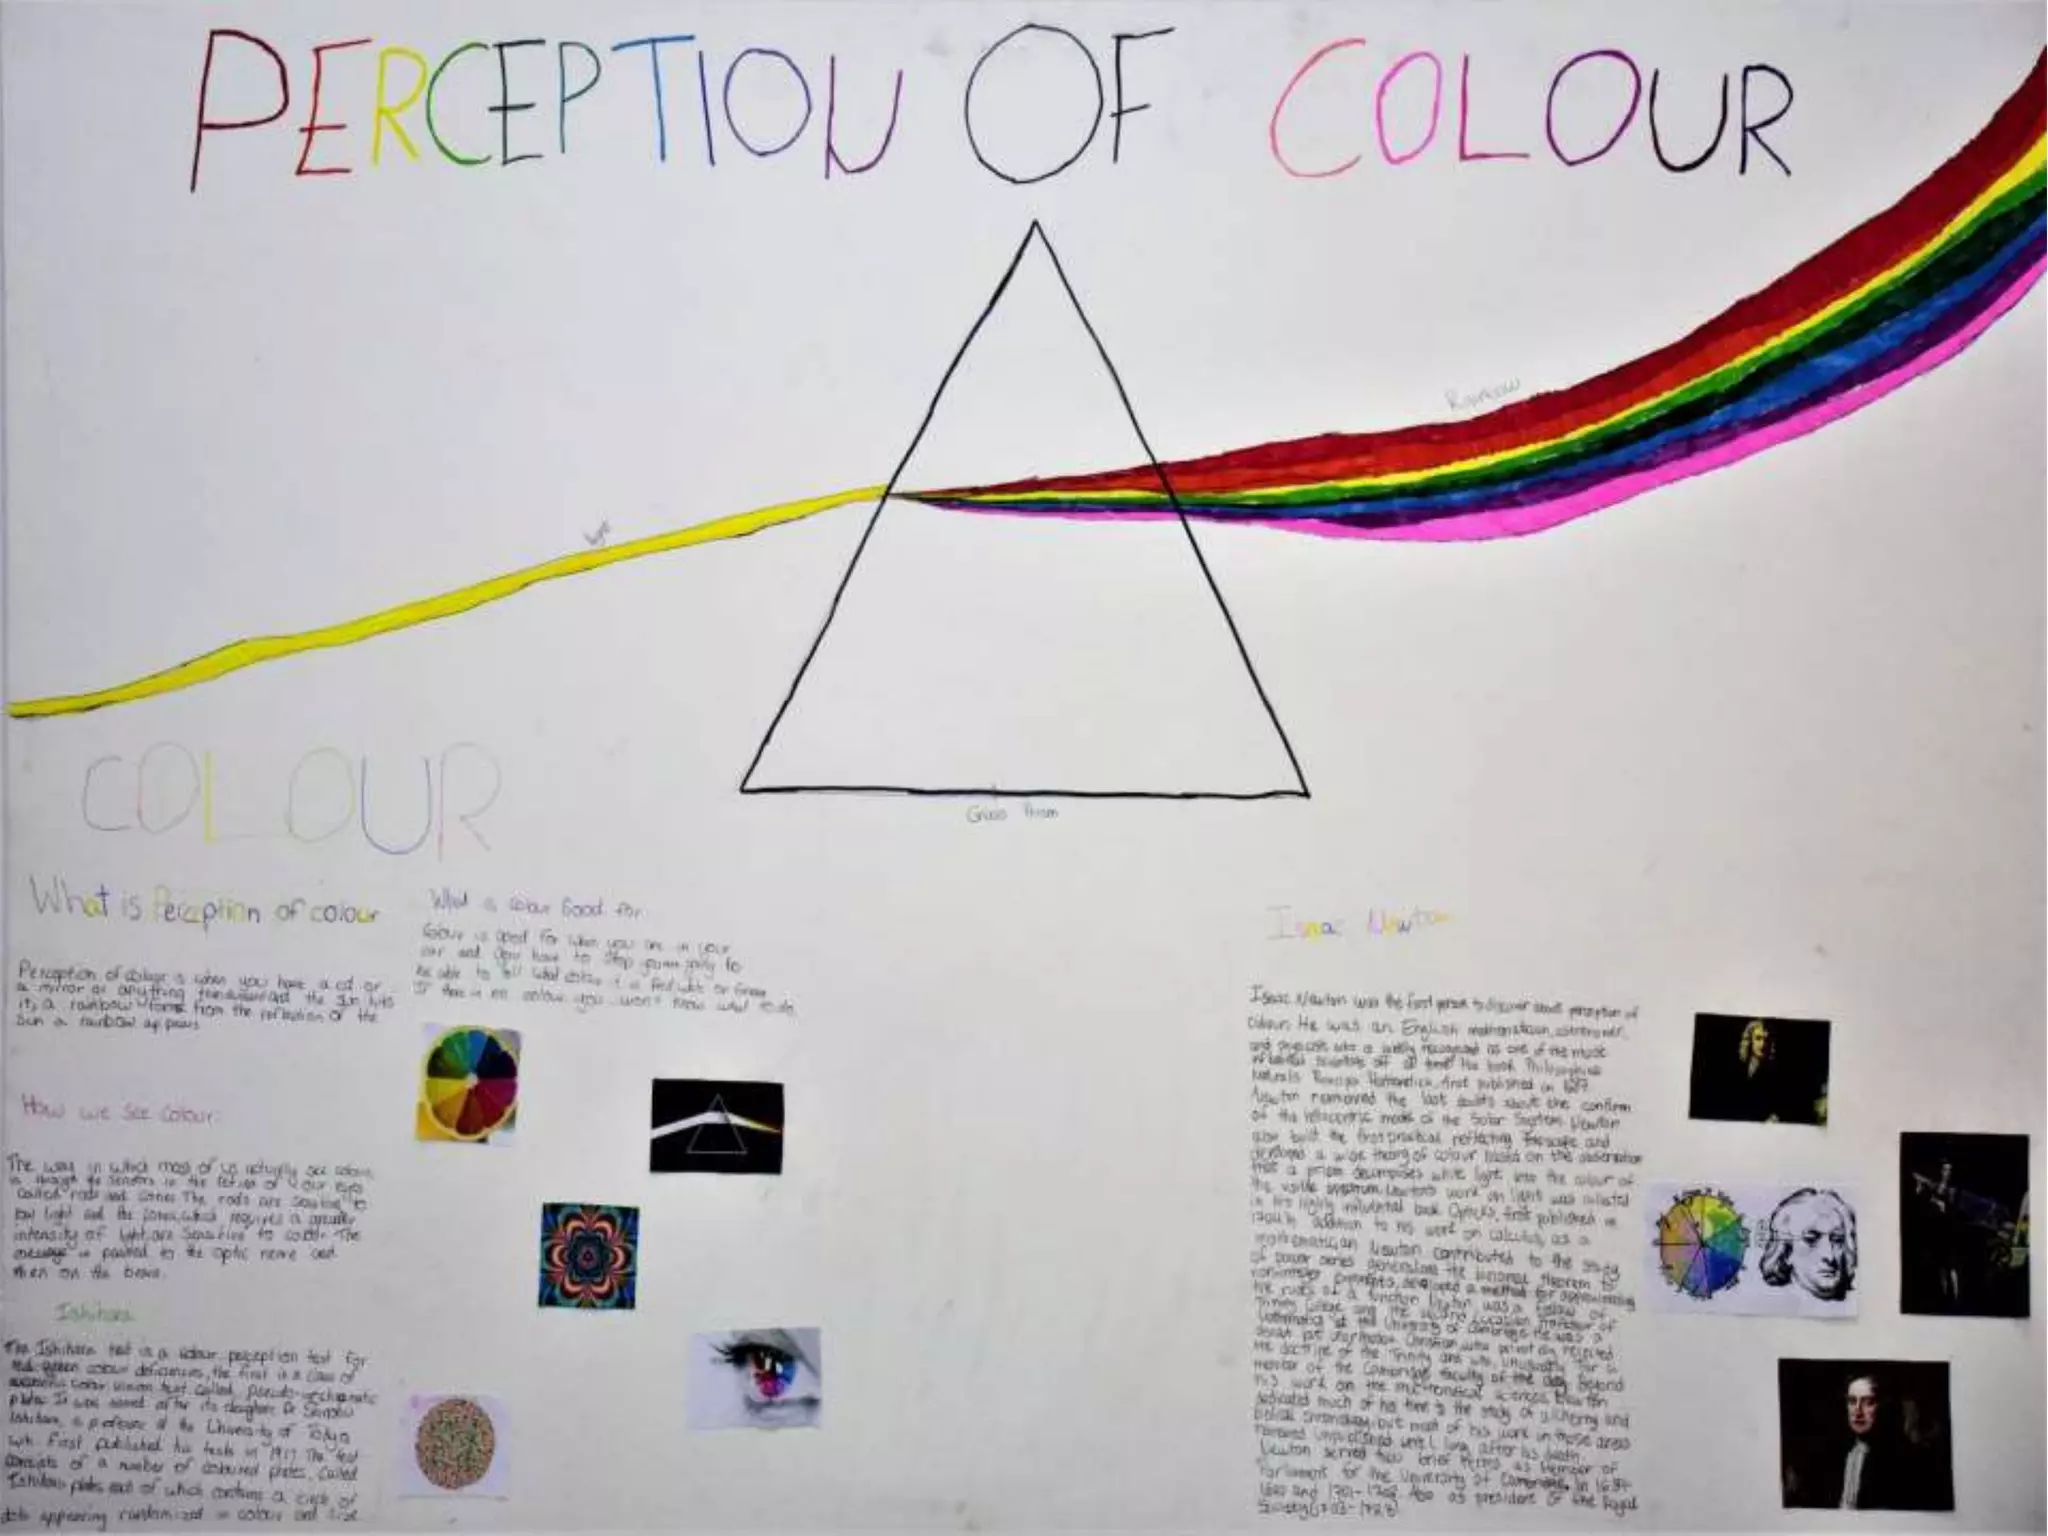 PERCEPTION OF COLOUR
Rainbow
light
COLOUR
Glass Prism
What is Perception of colour
Perception of colour is when you have a cd or
a mirror or anything and the sun hits
it, a rainbow forms from the reflection of the
sun a rainbow appears
What is colour Good for
Colour is good for when you are in your
car and you have to stop going to
be able to tell what colour it is Red or Green
If there is no colour you won't know what to do.
How we see colour:
The way in which most of us actually see colour
is through the sensors in the retina of our eyes
called rods and cones The rods are sensitive to
low light and the cones, which requires a greater
intensity of light, are sensitive to colour. The
message is passed to the optic nerve and
then on the
Ishihara
The Ishihara test is a colour perception test for
red-green colour deficiencies, the first in a class of
colour vision test called
plates. It was named after its Dr
Ishihara, a professor at the University of Tokyo
who first published his tests in 1917 The test
consists of a number of coloured plates, called
Ishihara plates each of which contains a circle of
dots appearing randomized in colour and size
Isaac Newton
Isaac Newton was the first person to discover about perception of
colour. He was an English mathematician, astronomer,
and physicist who is widely recognised as one of the most
influential scientists of all time His book Philosophiae
Naturalis Principia first published in 1687
Newton removed the last doubts about the
of the heliocentric model of the Solar System Newton
also built the first practical reflecting and
developed a theory of colour based on the observation
that a prism decomposes white light into the colour of
the visible spectrum. Newton's work on light was collected
in his highly influential book Opticks, first published in
1704. In addition to his work on calculus, as a
mathematician Newton contributed to the study
of power series the binomial theorem to
developed a method for approximating
the roots of a function Newton was a fellow of
Trinity College and the second Lucasian Professor of
Mathematics at the University of Cambridge. He was a
devout but Christian, who privately rejected
the doctrine of the Trinity and who, unusually for a
member of the Cambridge faculty of the day, Beyond
his work on the mathematical sciences Newton
dedicated much of his time to the study of and
biblical chronology, but most of his work in those areas
remained unpublished until long after his death
Newton served two brief terms as Member of
Parliament for the University of Cambridge, in
and 1701-1702 Also as president of the Royal
Society